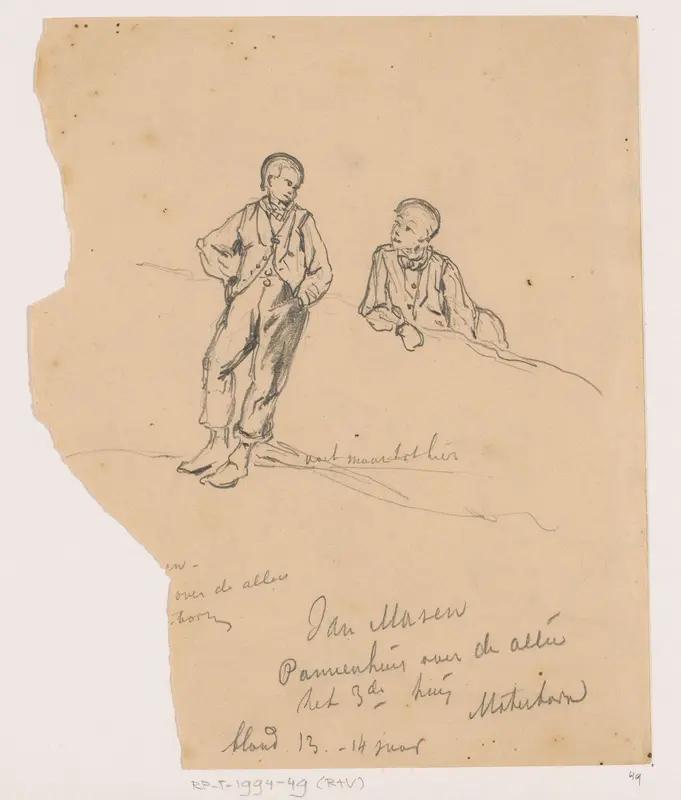 voet maar tot hier
en-
over de allee
born
Jan Masen
Pannenhuis over de allée
het 3de huis Materborn
blond 13.-14 jaar
RP-T-1994-49 (R+V)
49